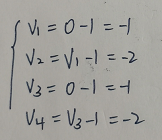 V₁ = 0 - 1 = -1
V₂ = V₁ - 1 = -2
V₃ = 0 - 1 = -1
V₄ = V₃ - 1 = -2